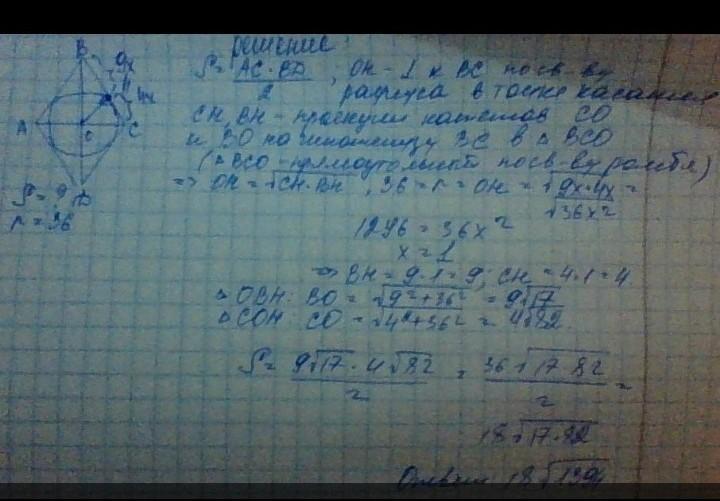 решение:
B
9x
H
4x
A
O
C
D
S = ?
r = 36
S = AC·BD / 2 , OH - ⊥ к BC по св-ву
радиуса в точке касания
CH, BH - проекции катетов CO
и BO на гипотенузу BC в △ BCO
(△ BCO - прямоугольный по св-ву ромба)
=> OH = √CH·BH , 36 = r = OH = √9x·4x =
√36x²
1296 = 36x²
x = 1
=> BH = 9·1 = 9, CH = 4·1 = 4
△ OBH: BO = √9²+36² = 9√17
△ COH: CO = √4²+36² = 4√82
S = 9√17 · 4√82 / 2 = 36√17·82 / 2 =
18√17·82
Ответ: 18√1394